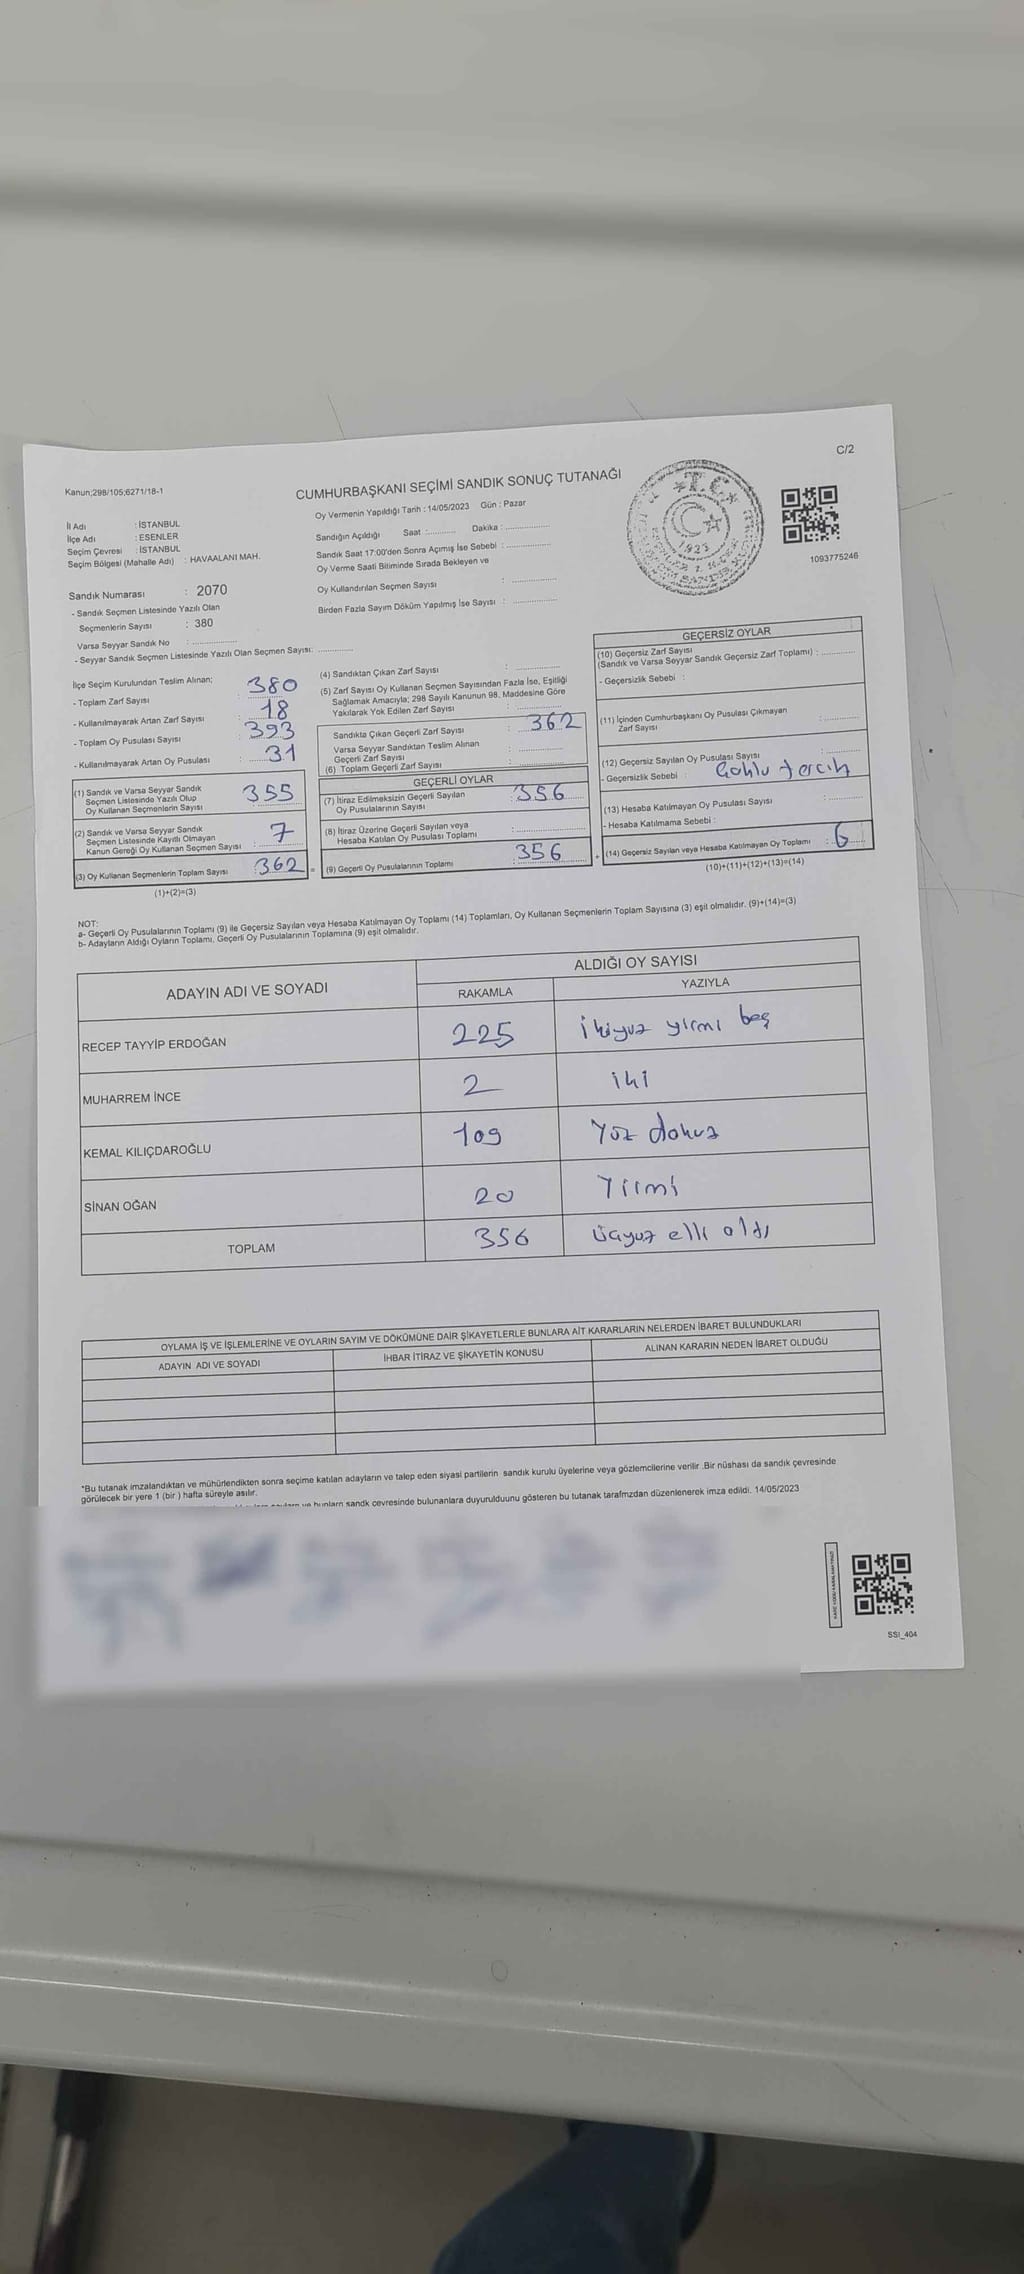 C/2
Kanun;298/105;6271/18-1
CUMHURBAŞKANI SEÇİMİ SANDIK SONUÇ TUTANAĞI
Oy Vermenin Yapıldığı Tarih : 14/05/2023 Gün : Pazar
İl Adı : İSTANBUL
İlçe Adı : ESENLER
Seçim Çevresi : İSTANBUL
Seçim Bölgesi (Mahalle Adı) : HAVAALANI MAH.
Sandık Numarası : 2070
- Sandık Seçmen Listesinde Yazılı Olan
Seçmenlerin Sayısı : 380
Varsa Seyyar Sandık No : ............
- Seyyar Sandık Seçmen Listesinde Yazılı Olan Seçmen Sayısı: ............
Sandığın Açıldığı Saat :............ Dakika : ............
Sandık Saat 17:00'den Sonra Açımış İse Sebebi : ............
Oy Verme Saati Bitiminde Sırada Bekleyen ve
Oy Kullandırılan Seçmen Sayısı : ............
Birden Fazla Sayım Döküm Yapılmış İse Sayısı : ............
T.C.
1923
1093775246
İlçe Seçim Kurulundan Teslim Alınan;
- Toplam Zarf Sayısı : 380
- Kullanılmayarak Artan Zarf Sayısı : 18
- Toplam Oy Pusulası Sayısı : 393
- Kullanılmayarak Artan Oy Pusulası : 31
(1) Sandık ve Varsa Seyyar Sandık
Seçmen Listesinde Yazılı Olup
Oy Kullanan Seçmenlerin Sayısı 355
(2) Sandık ve Varsa Seyyar Sandık
Seçmen Listesinde Kayıtlı Olmayan
Kanun Gereği Oy Kullanan Seçmen Sayısı : 7
(3) Oy Kullanan Seçmenlerin Toplam Sayısı : 362
(1)+(2)=(3)
(4) Sandıktan Çıkan Zarf Sayısı : ............
(5) Zarf Sayısı Oy Kullanan Seçmen Sayısından Fazla İse, Eşitliği
Sağlamak Amacıyla; 298 Sayılı Kanunun 98. Maddesine Göre
Yakılarak Yok Edilen Zarf Sayısı : ............
Sandıkta Çıkan Geçerli Zarf Sayısı : 362
Varsa Seyyar Sandıktan Teslim Alınan
Geçerli Zarf Sayısı : ............
(6) Toplam Geçerli Zarf Sayısı : ............
GEÇERLİ OYLAR
(7) İtiraz Edilmeksizin Geçerli Sayılan
Oy Pusulalarının Sayısı : 356
(8) İtiraz Üzerine Geçerli Sayılan veya
Hesaba Katılan Oy Pusulası Toplamı : ............
(9) Geçerli Oy Pusulalarının Toplamı : 356
GEÇERSİZ OYLAR
(10) Geçersiz Zarf Sayısı
(Sandık ve Varsa Seyyar Sandık Geçersiz Zarf Toplamı) : ............
- Geçersizlik Sebebi :
(11) İçinden Cumhurbaşkanı Oy Pusulası Çıkmayan
Zarf Sayısı : ............
(12) Geçersiz Sayılan Oy Pusulası Sayısı : ............
- Geçersizlik Sebebi : Çoklu tercih
(13) Hesaba Katılmayan Oy Pusulası Sayısı : ............
- Hesaba Katılmama Sebebi :
(14) Geçersiz Sayılan veya Hesaba Katılmayan Oy Toplamı : 6
(10)+(11)+(12)+(13)=(14)
NOT:
a- Geçerli Oy Pusulalarının Toplamı (9) ile Geçersiz Sayılan veya Hesaba Katılmayan Oy Toplamı (14) Toplamları, Oy Kullanan Seçmenlerin Toplam Sayısına (3) eşit olmalıdır. (9)+(14)=(3)
b- Adayların Aldığı Oyların Toplamı, Geçerli Oy Pusulalarının Toplamına (9) eşit olmalıdır.
ADAYIN ADI VE SOYADI ALDIĞI OY SAYISI
RAKAMLA YAZIYLA
RECEP TAYYİP ERDOĞAN 225 ikiyuz yirmi beş
MUHARREM İNCE 2 iki
KEMAL KILIÇDAROĞLU 109 Yüz dokuz
SİNAN OĞAN 20 Yirmi
TOPLAM 356 üçyuz elli altı
OYLAMA İŞ VE İŞLEMLERİNE VE OYLARIN SAYIM VE DÖKÜMÜNE DAİR ŞİKAYETLERLE BUNLARA AİT KARARLARIN NELERDEN İBARET BULUNDUKLARI
ADAYIN ADI VE SOYADI İHBAR İTİRAZ VE ŞİKAYETİN KONUSU ALINAN KARARIN NEDEN İBARET OLDUĞU
*Bu tutanak imzalandıktan ve mühürlendikten sonra seçime katılan adayların ve talep eden siyasi partilerin sandık kurulu üyelerine veya gözlemcilerine verilir .Bir nüshası da sandık çevresinde
görülecek bir yere 1 (bir ) hafta süreyle asılır.
ve bunların sandk çevresinde bulunanlara duyurulduunu gösteren bu tutanak tarafmzdan düzenlenerek imza edildi. 14/05/2023
SSI_404